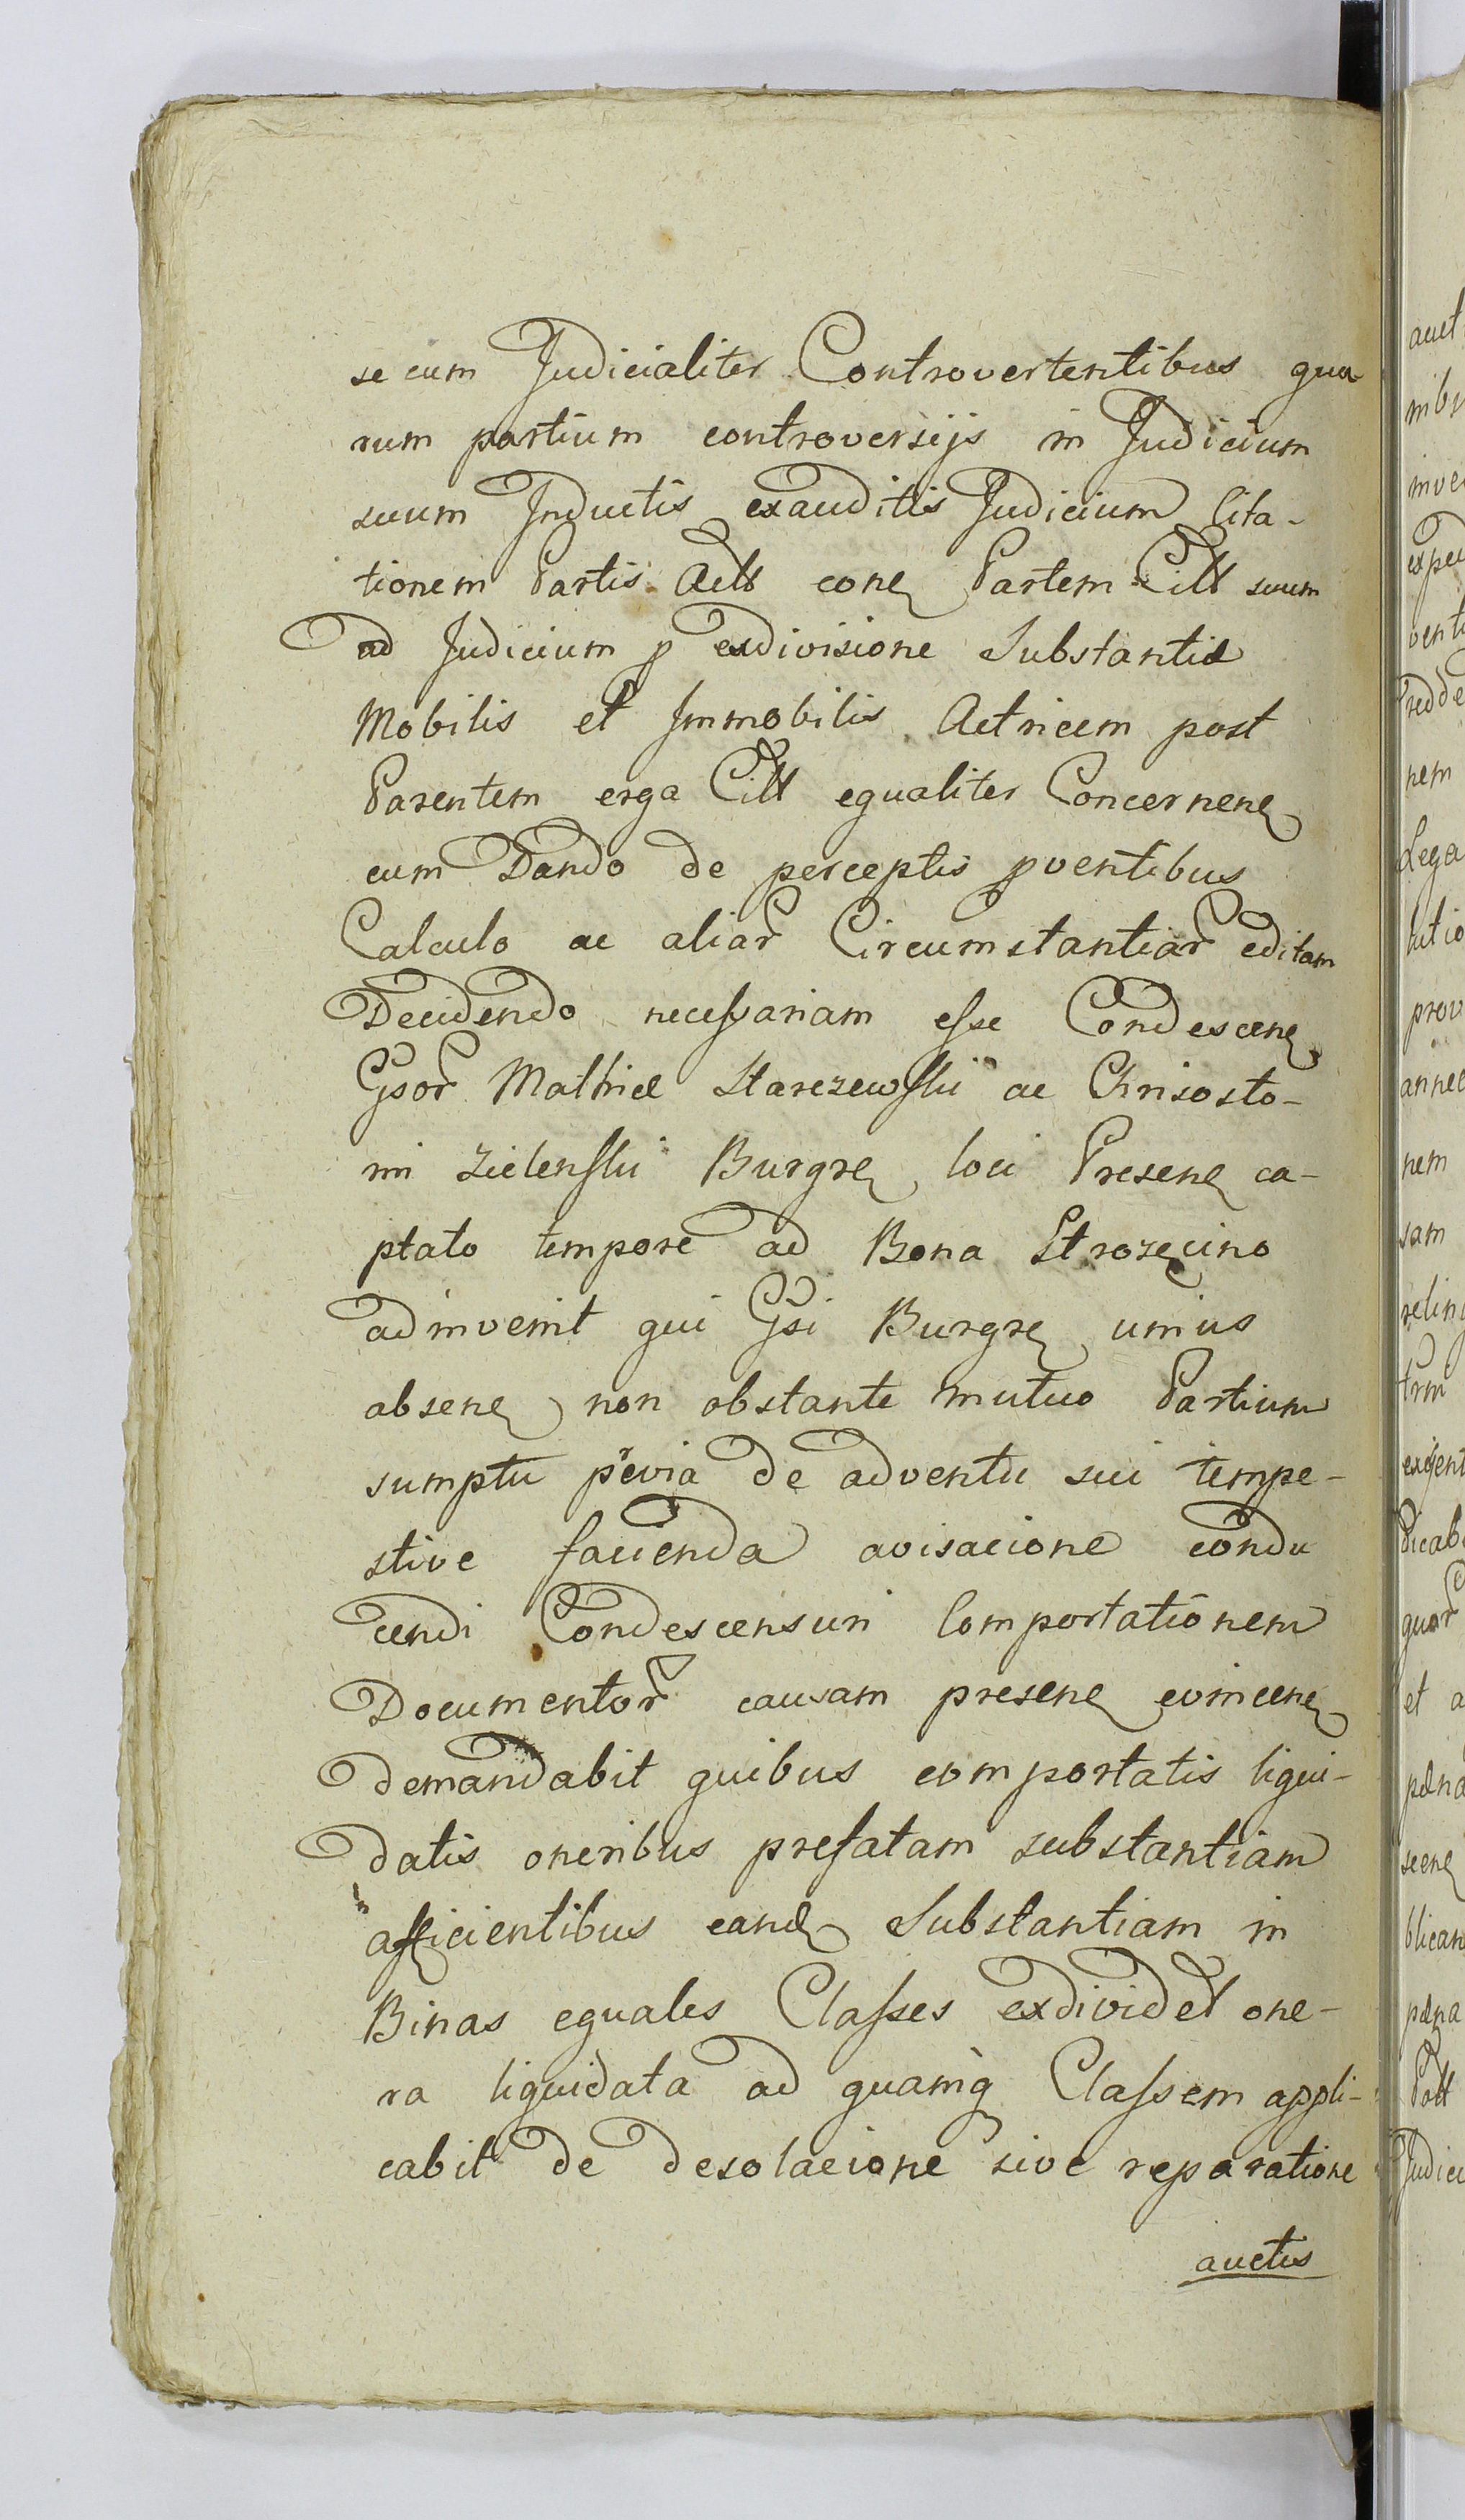 se cum Judicialiter Controvertentibus qua
rum partium controversijs in Judicium
suum Inductis exauditis Judicium Cita-
tionem Partis Actt conq Partem Citt suum
ad Judicium p exdivisione Substantiæ
Mobilis et Immobilis Actricem post
Parentem erga Citt equaliter Concernenq
cum Dando de perceptis pventibus
Calculo ac aliar Circumstantiar editam
Decidendo necessariam esse Condescenq
Gsor Mathiæ Starczewskii ac Chrisosto-
mi Zielenskii Burgrq loci Presenq ca-
ptato tempore ad Bona
adinvenit qui Gsi Burgrq unius
absenq non obstante mutuo Partium
sumptu pr̃evia de adventu sui tempe-
stive facienda avisacione condu
cendi Condescensuri Comportationem
Documentor causam presenq evincenq
demandabit quibus comportatis liqui-
datis oneribus prefatam substantiam
afficientibus eandq Substantiam in
Binas equales Classes exdividet one-
ra liquidata ad quamq Classem appli-
cabit de desolacione sive reparatione
auctis
auct
nibu
inve
expe
venti
redde
nem
Lega
lutio
prov
annec
nem
sam
relin
trm
exigent
dicab
quar
et a
pæna
scenq
blican
pæna
Patt
Judici